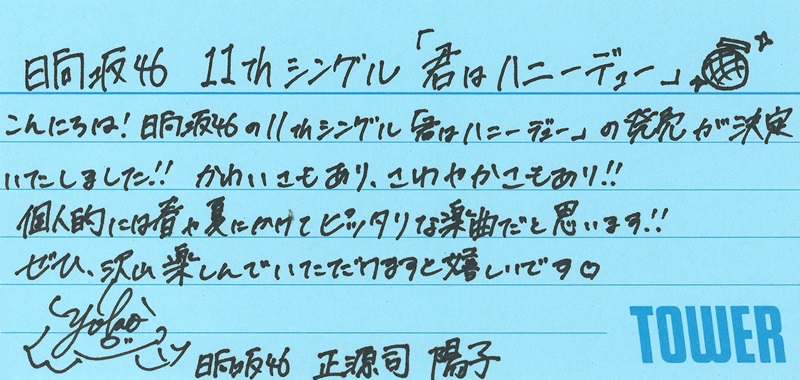 日向坂46 11thシングル「君はハニーデュー」
こんにちは!日向坂46の11thシングル「君はハニーデュー」の発売が決定
いたしました!! かわいさもあり、さわやかさもあり!!
個人的には春や夏にかけてピッタリな楽曲だと思います!!
ぜひ、沢山楽しんでいただけますと嬉しいです♡
yoko
日向坂46 正源司 陽子
TOWER